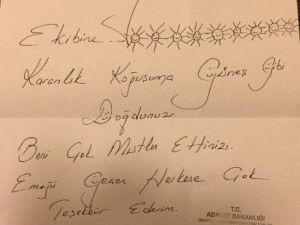 Ekibine
Karanlık Koğuşuma Güneş Gibi
Doğdunuz
Beni Çok Mutlu Ettiniz.
Emeği Geçen Herkese Çok
Teşekkür Ederim.
T.C.
ADALET BAKANLIĞI